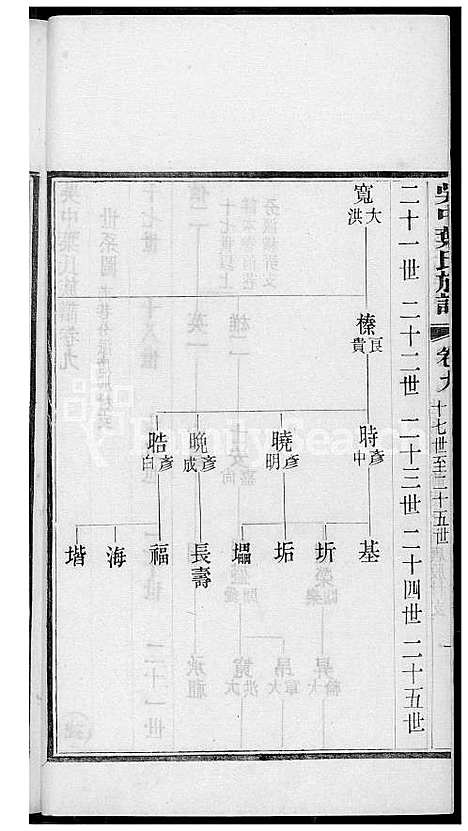 吳中葉氏族譜 卷九 十七世至二十五世
二十一世 二十二世 二十三世 二十四世 二十五世
寬 大洪
榛 良貴
時 彥中
曉 彥明
晚 彥成
晧 彥白
基
圻
垢
堝
長壽
福
海
堦
FamilySearch